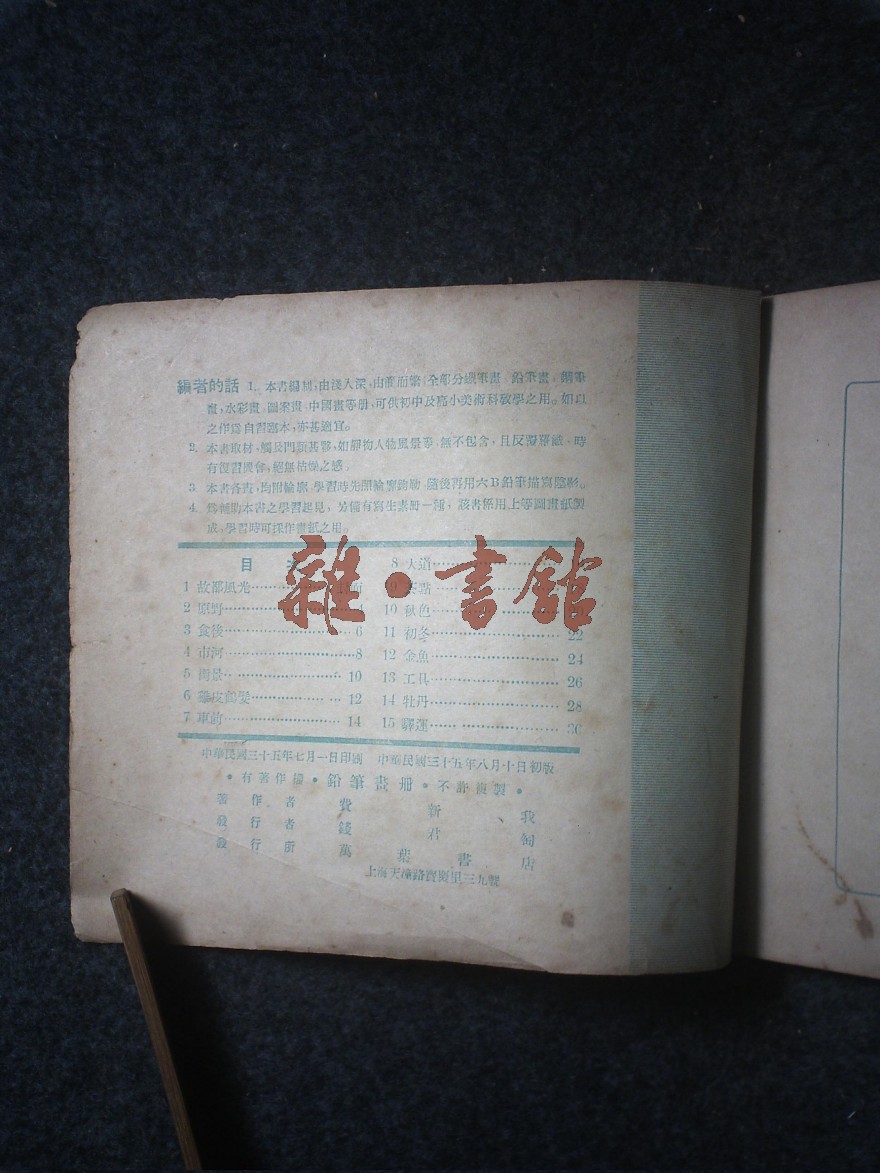 編者的話 1. 本書編制,由淺入深,由簡而繁,全部分蠟筆畫 鉛筆畫,鋼筆
畫,水彩畫,圖案畫,中國畫等册,可供初中及高小美術科教學之用。如以
之作爲自習臨本,亦甚適宜。
2. 本書取材,觸及門類甚繁,如靜物人物風景等,無不包含,且反覆穿鍼,時
有復習機會,絕無枯燥之感。
3. 本書各頁,均附輪廓,學習時先開輪廓鉤勒,隨後再用六B鉛筆描寫陰影。
4. 爲輔助本書之學習起見,另備有寫生素册一種,該書係用上等圖畫紙製
成,學習時可採作畫紙之用。
目
1 故都風光
2 原野
3 食後 6
4 市河 8
5 街景 10
6 雞皮鶴髮 12
7 車前 14
8 大道
9 茶點
10 秋色
11 初冬 22
12 金魚 24
13 工具 26
14 牡丹 28
15 驛運 30
雜·書館
中華民國三十五年七月一日印刷 中華民國三十五年八月十日初版
•有著作權•鉛筆畫册•不許複製•
著作者 費新我
發行者 錢君匋
發行所 萬葉書店
上海天潼路寶慶里三九號